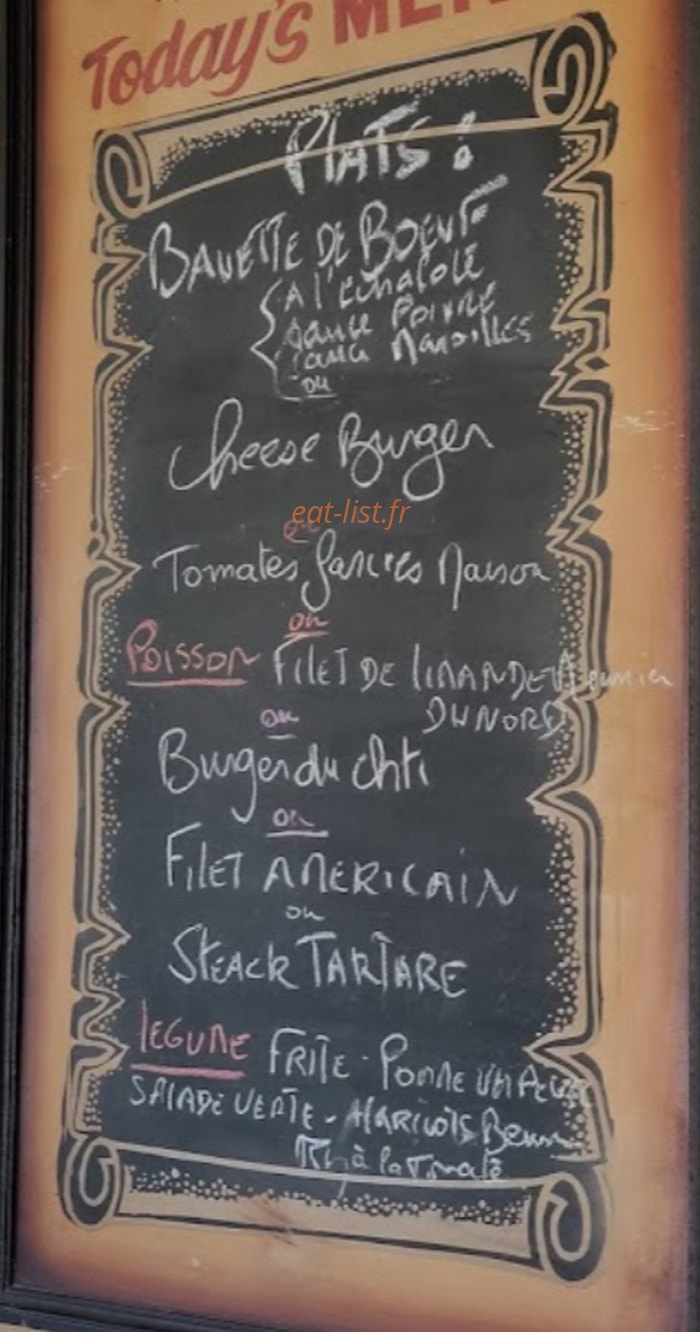 Today's MENU
Plats :
BAVETTE DE BOEUF
A l'échalote
sauce Poivre
sauce Maroilles
ou
Cheese Burger
eat-list.fr
ou
Tomates farcies Maison
ou
POISSON FILET DE LIMANDE Meunier
DU NORD
ou
Burger du chti
ou
FILET AMERICAIN
ou
STEACK TARTARE
LEGUME FRITE - POMME VAPEUR
SALADE VERTE - HARICOTS Beurre
Riz à la Tomate